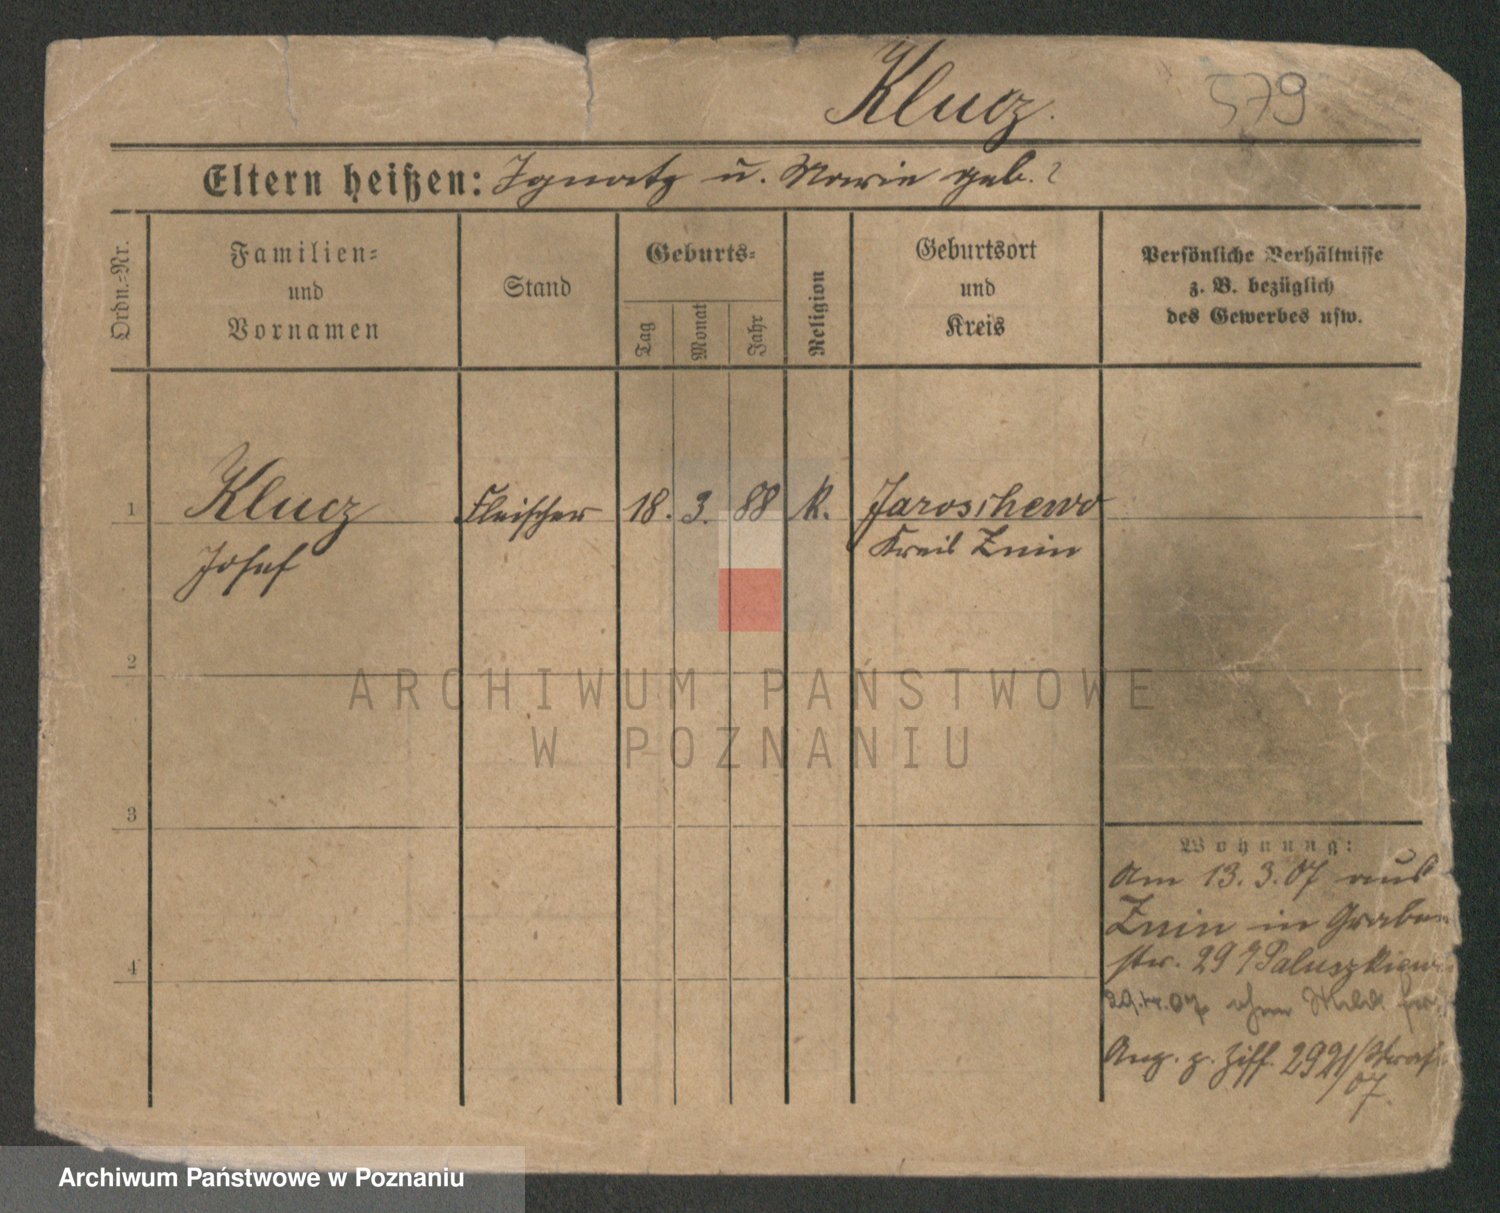 Klucz.
579
Eltern heißen: Ignatz u. Marie geb. ?
Ordn.-Nr.
Familien-
und
Vornamen
Stand
Geburts-
Tag
Monat
Jahr
Religion
Geburtsort
und
Kreis
Persönliche Verhältnisse
z. B. bezüglich
des Gewerbes usw.
1 Klucz Fleischer 18. 3. 88 k. Jaroschewo
Josef Kreis Znin
2
ARCHIWUM PAŃSTWOWE
W POZNANIU
3
Wohnung:
Am 13.3.07 aus
Znin in Graben
str. 29
4
ohne
Ang. z. Ziff. 2921/
07.
Archiwum Państwowe w Poznaniu